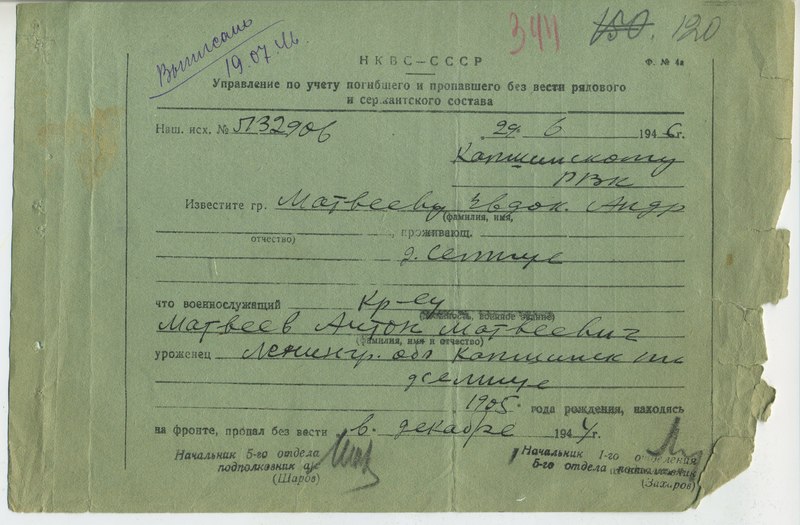 Выписано
19.07.46
344 150. 120
НКВС—СССР
Ф. № 4а
Управление по учету погибшего и пропавшего без вести рядового
и сержантского состава
Наш. исх. № П32906 29. 6 1946 г.
Капшинскому
РВК
Известите гр. Матвееву Евдок. Андр
(фамилия, имя,
отчество) , проживающ.
д. Селище
что военнослужащий кр-ец
(должность, военное звание)
Матвеев Антон Матвеевич
(фамилия, имя и отчество)
уроженец Ленингр. обл Капшинск
д Селище
1905 года рождения, находясь
на фронте, пропал без вести в декабре 1944 г.
Начальник 5-го отдела
подполковник а/с
(Шаров)
Начальник 1-го отделения
5-го отдела
(Захаров)